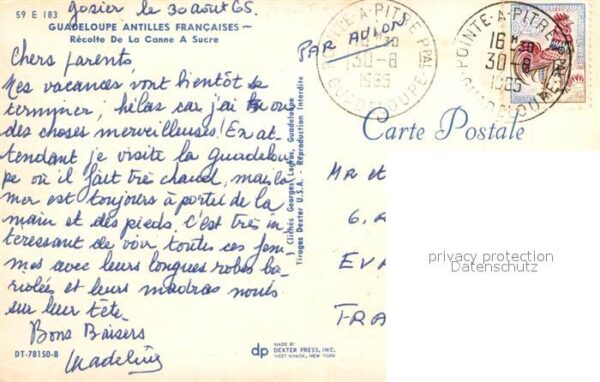 59 E 183
GUADELOUPE ANTILLES FRANÇAISES
Récolte De La Canne A Sucre
gosier le 30 août 65.
Chers parents,
Mes vacances vont bientôt se
terminer; hélas car j'ai vu
des choses merveilleuses! En at-
tendant je visite la guadelou-
pe où il fait très chaud, mais la
mer est toujours à portée de la
main et des pieds. C'est très in-
téressant de voir toutes ces fem-
mes avec leurs longues robes ba-
riolées et leurs madras noués
sur leur tête.
Bons Baisers
Madeleine
DT-78150-B
Clichés Georges Legros, Guadeloupe
Tirages Dexter U.S.A. - Réproduction Interdite
dp MADE BY
DEXTER PRESS, INC.
WEST NYACK, NEW YORK
PAR AVION
POINTE-A-PITRE PPAL
16 H 30
30-8
1965
GUADELOUPE
POINTE-A-PITRE PPAL
16 H 30
30-8
1965
GUADELOUPE
Carte Postale
Mr et
6.
EV
FRA
privacy protection
Datenschutz